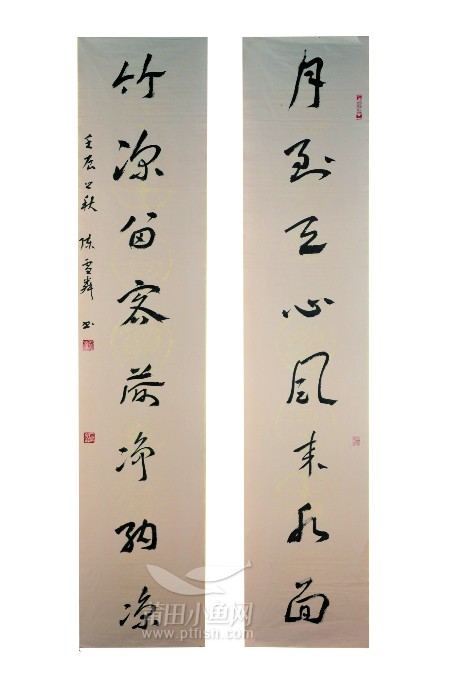 月到天心风来水面
竹深留客荷净纳凉
壬辰之秋 陈雪 书
莆田小鱼网
www.ptfish.com